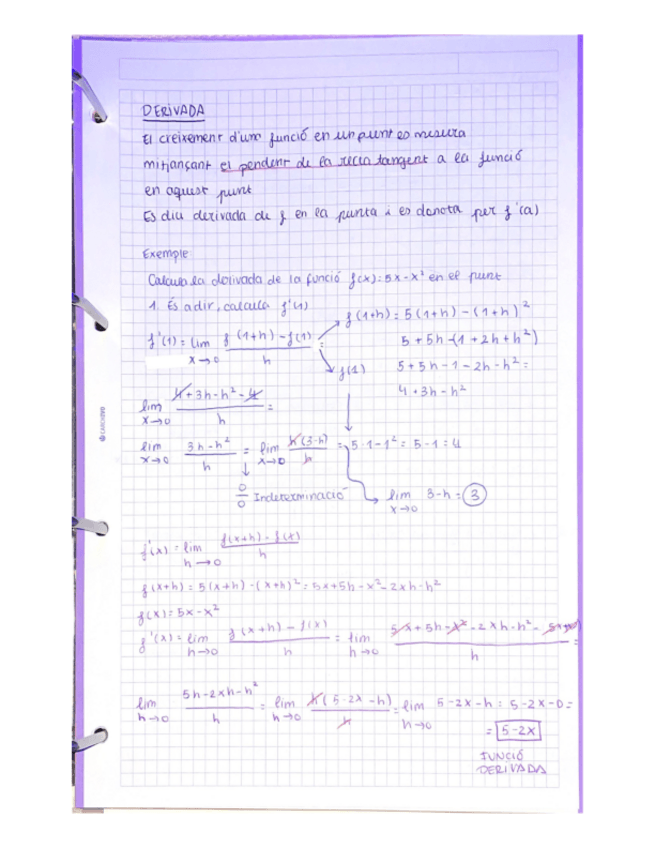 DERIVADA
El creixement d'una funció en un punt es mesura
mitjançant el pendent de la recta tangent a la funció
en aquest punt
Es diu derivada de f en la punta i es denota per f'(a)
Exemple
Calcula la derivada de la funció f(x)=5x-x² en el punt
1. És a dir, calcula f'(1)
f'(1)= lim x→0 f(1+h)-f(1) / h =
f(1+h)=5(1+h)-(1+h)²
5+5h-(1+2h+h²)
5+5h-1-2h-h²=
4+3h-h²
f(1)
lim x→0 4+3h-h²-4 / h =
lim x→0 3h-h² / h = lim x→0 h(3-h) / h =
5·1-1²=5-1=4
0/0 Indeterminació
lim x→0 3-h=3
f'(x)= lim h→0 f(x+h)-f(x) / h
f(x+h)=5(x+h)-(x+h)²=5x+5h-x²-2xh-h²
f(x)=5x-x²
f'(x)= lim h→0 f(x+h)-f(x) / h = lim h→0 5x+5h-x²-2xh-h²-5x+x²) / h =
lim h→0 5h-2xh-h² / h = lim h→0 h(5-2x-h) / h = lim h→0 5-2x-h = 5-2x-0=
= 5-2x
FUNCIÓ
DERIVADA
CARCHIVO